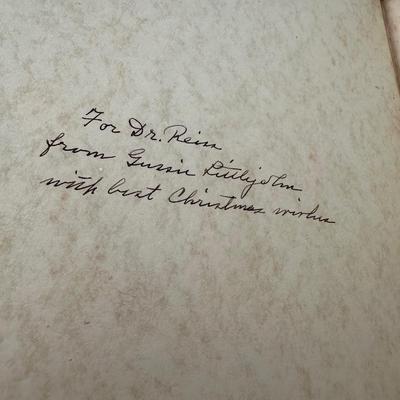 For Dr. Reiss
from Gussie Littlejohn
with best Christmas wishes